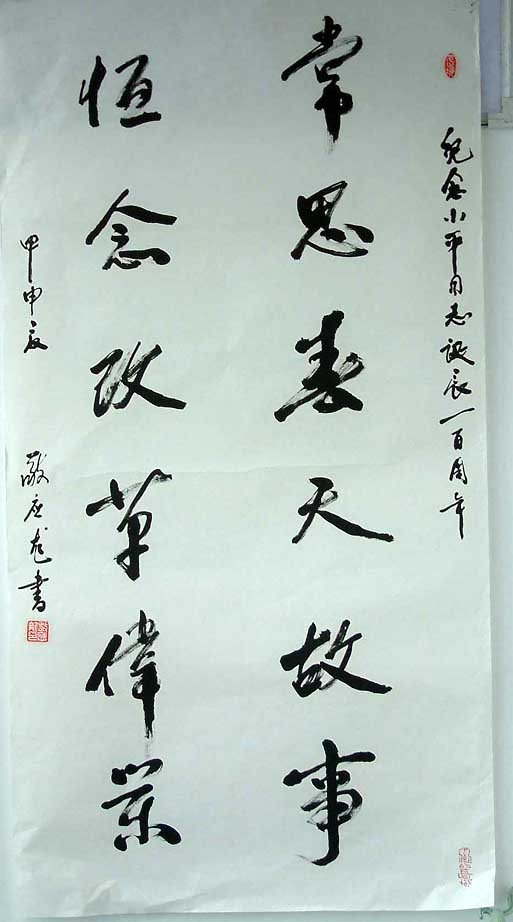 纪念小平同志诞辰一百周年
常思春天故事
恒念改革偉業
甲申夏
應龙書